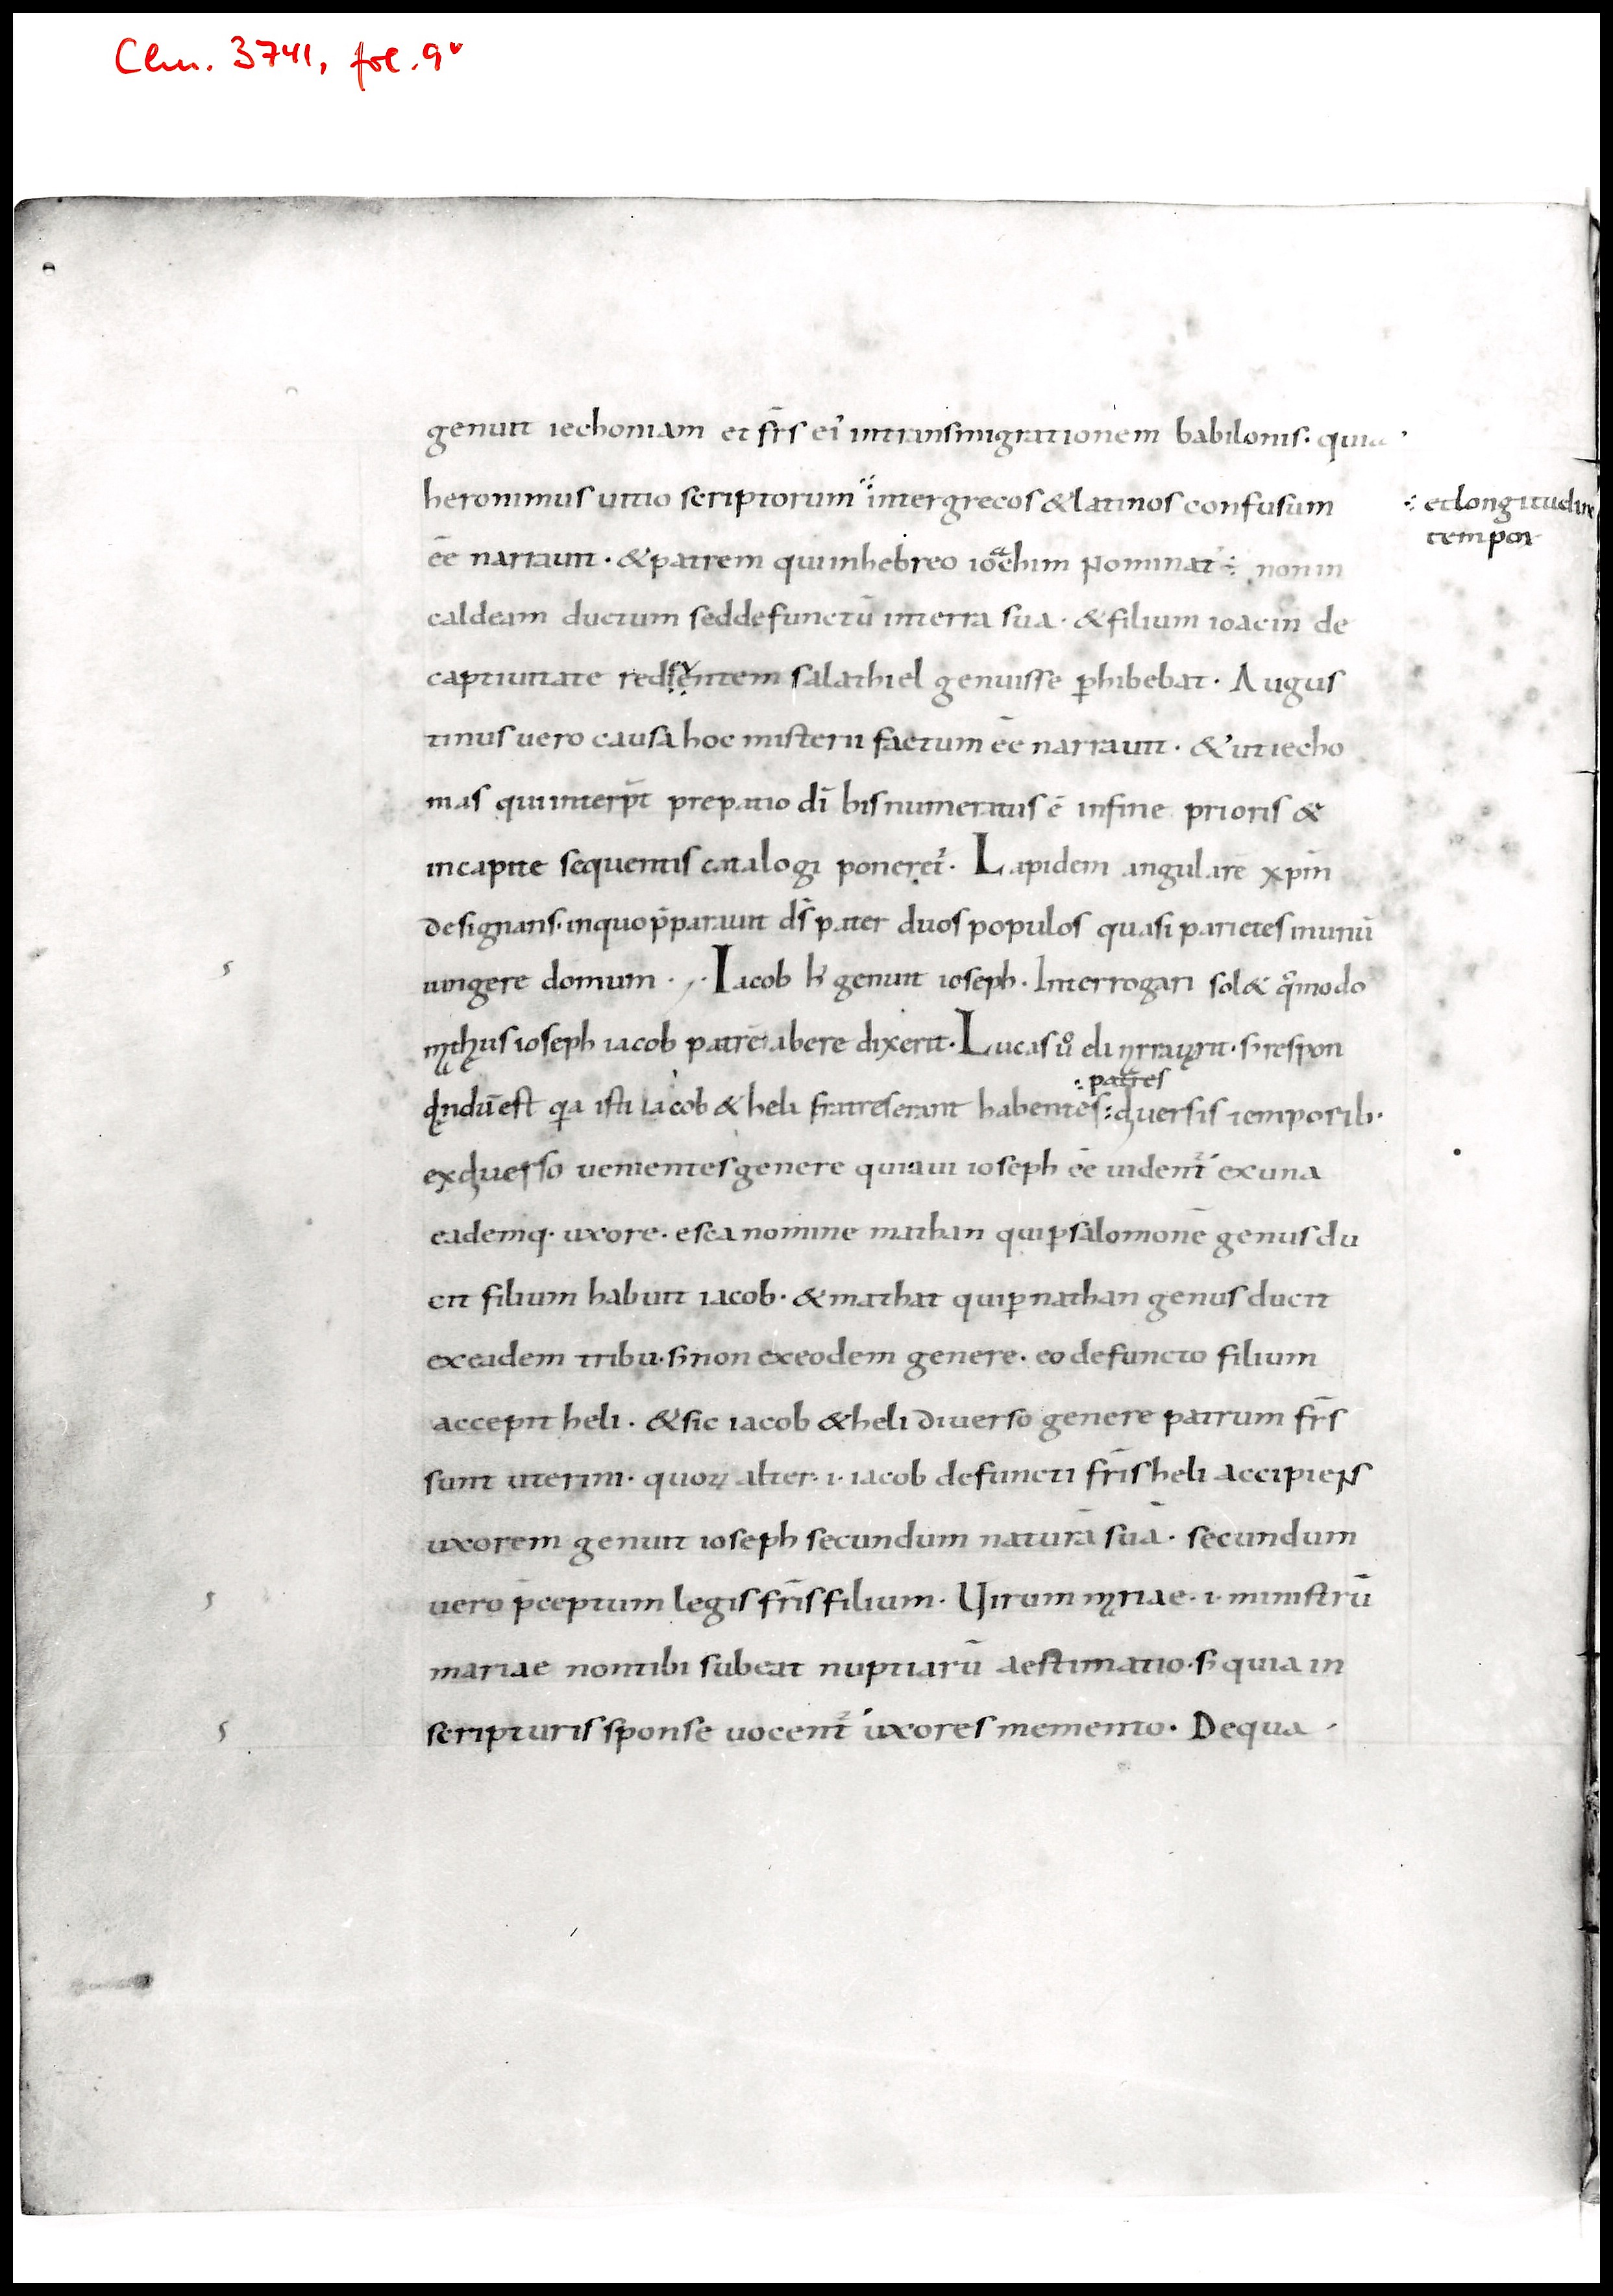 Clm. 3741, fol. 9v
genuit iechoniam et fr̄s ei' intransmigrationem babilonis· quia
heronimus uitio scriptorum ⁖ intergrecos &latinos confusum
⁖ etlongitudine
tempor
ēē narrauit · &patrem quiinhebreo ioachim Nominat' ⁖ nonin
caldeam ductum seddefunctū interra sua · &filium ioacin de
captiuitate salathiel genuisse ꝑhibebat · Augus
tinus uero causa hoc misterii factum ēē narrauit · &utiecho
nias quiinterp̄t prepatio dī bisnumeratus ē infine prioris &
incapite sequentis catalogi poneret᷑ · Lapidem angularē xpm̄
designans· inquop̄parauit ds̄ pater duos populos quasi parietes inunū
iungere domum · Iacob genuit ioseph · Interrogari sol& qͦmodo
ioseph iacob patrē abere dixerit · Lucas uͦ eli · respon
est qͥa isti iacob & heli fratreserant habentes ⁖ diuersis temporib·
⁖ patres
exdiuerso uenientesgenere quiaui ioseph ēē uident᷑ exuna
eademq· uxore · esca nomine mathan quiꝑsalomonē genus du
cit filium habuit iacob · & mathat quiꝑnathan genus ducit
exeadem tribu · s̄ non exeodem genere · eo defuncto filium
accepit heli · &sic iacob &heli diuerso genere patrum fr̄s
sunt uterini · quoꝝ alter · i · iacob defuncti fr̄is heli accipiens
uxorem genuit ioseph secundum naturā suā · secundum
uero p̄ceptum legis fr̄is filium · Uirum mariae · i · ministrū
mariae nontibi subeat nuptiarū aestimatio · s̄ quia in
scripturis sponse uocent᷑ uxores memento · Dequa